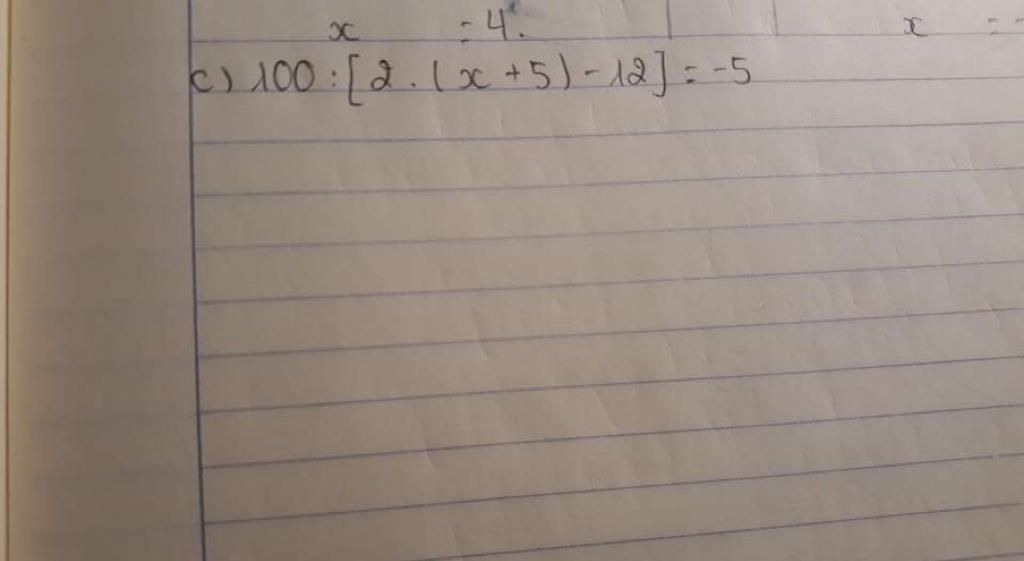 x = 4. x =
c) 100 : [2 . (x + 5) - 12] = -5